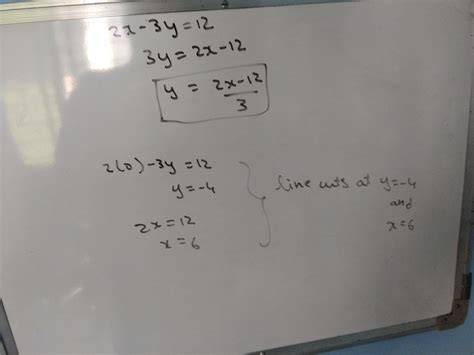 2x-3y=12
3y=2x-12
y = 2x-12/3
2(0)-3y=12
y=-4
2x=12
x=6
line cuts at y=-4
and
x=6